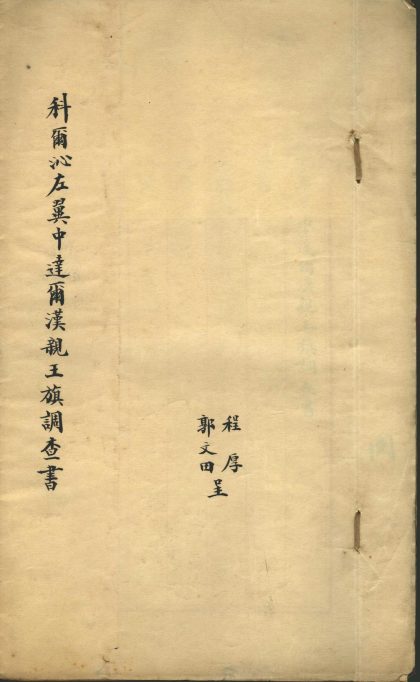 程厚
郭文田呈
科爾沁左翼中達爾漢親王旗調查書